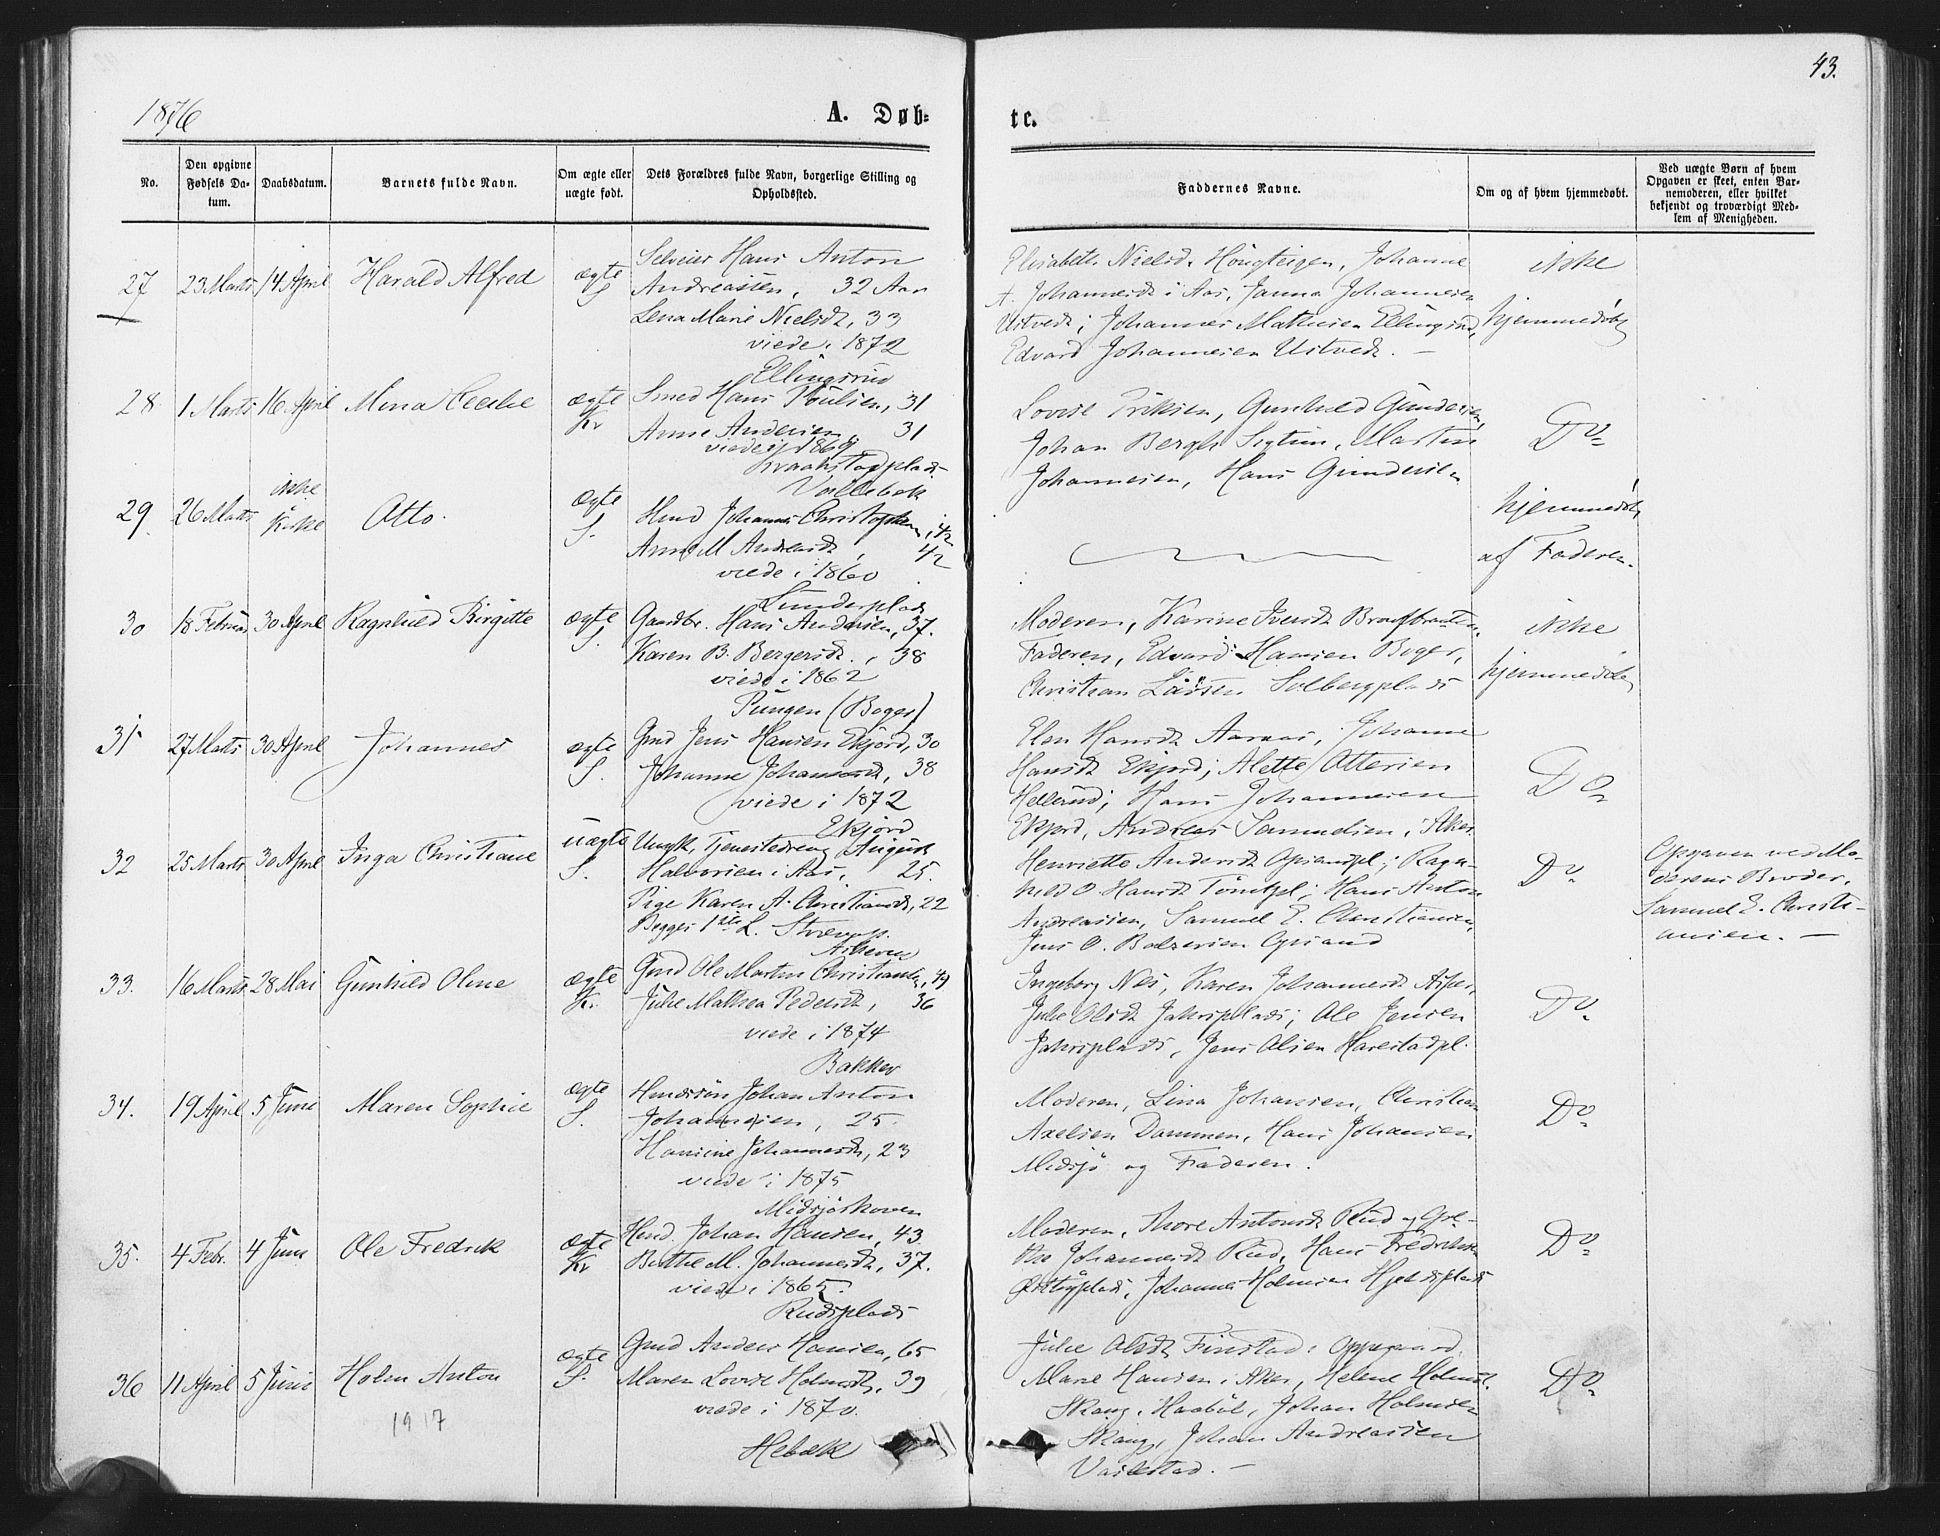 43.
1876
A. Døb-
te.
No.
Den opgivne Fødsels Da-tum.
Daabsdatum.
Barnets fulde Navn.
Om ægte eller uægte født.
Dets Forældres fulde Navn, borgerlige Stilling og Opholdssted.
Faddernes Navne.
Om og af hvem hjemmedøbt.
Ved uægte Børn af hvem
Opgaven er skeet, enten Bar-
nemoderen, eller hvilket
bekjendt og troværdigt Med-
lem af Menigheden.
27 23 Marts 14 April Harald Alfred ægte S
Selveier Hans Anton
Andreassen, 32 Aar
Lena Marie Nielsdt, 33
viede i 1872
Ellingsrud
Elisabeth Nielsd. Houghteigen, Johanne
A. Johannesdt i Aas, Janna Johannesen
Ustvedt; Johannes Mathisen Ellingsrud,
Edvard Johannesen Ustvedt. —
ikke
hjemmedøbt
28. 1 Marts 16 April Mina Cecilie ægte Kr
Smed Hans Poulsen, 31
Anne Andersen, 31
viede i 1869
Kraakstadplads
Lovise Eriksen, Gunhild Gundersen,
Johan Bergh, Martin
Johannesen, Hans Gundersen
Do
29. 26 Marts ikke i Kirke Otto. ægte S.
Vollebek
Hmd Johannes Christophersen, 42
Anne M Andersdt, 42
viede i 1860
Lunderplads
hjemmedøbt
af Faderen.
30 18 Februar 30 April Ragnhild Birgitte ægte S.
Gaardbr. Hans Andersen, 37.
Karen B. Bergersdt., 38
viede i 1862
Pungen (Boger)
Moderen, Karine Iversdt
Faderen, Edvard Hansen Boger,
Christian Larsen Solbergplads
ikke
hjemmedøbt
31 27 Marts 30 April Johannes ægte S.
Gmd Jens Hansen Ekjord, 30
Johanne Johannesdt, 38
viede i 1872
Ekjord
Elen Hansdt Aaraas, Johanne
Hansdt Ekjord; Alette Ottersen
Hellerud; Hans Johannesen
Ekjord, Andreas Samuelsen, i Aker
Do
32 25 Marts 30 April Inga Christiane uægte S.
Ungk. Tjenestedreng August
Halvorsen i Aas, 25.
Pige Karen A. Christiansdt, 22
Begges 1ste L.
Henriette Andersdt Opsandpl.; Ragn-
hild O. Hansdt; Hans Anton
Andreassen, Samuel E. Christiansen,
Jens O. Balzersen Opsand
Do
Opgaven ved Mo-
derens Broder,
Samuel E. Christi-
ansen. —
33. 16 Marts 28 Mai Gunhild Oline ægte Kr.
Gmd Ole Martin Christiansen, 49
Julie Mathea Pedersdt, 36
viede i 1874
Bakker
Ingeborg Nes, Karen Johannesdt
Julie Olsdt Jahrsplads; Ole Jensen
Jahrsplads, Jens Olsen Harestadpl.
Do
34. 19 April 5 Juni Maren Sophie ægte S.
Huusmdssøn Johan Anton
Johannesen, 25.
Hansine Johannesdt, 23
viede i 1875
Midsjøskoven
Moderen, Lina Johansen, Christian
Axelsen Dammen, Hans Johansen
Midsjø og Faderen.
Do
35. 4 Febr. 4 Juni Ole Fredrik ægte Kr
Hmd. Johan Hansen, 43.
Berthe M. Johannesdt, 37.
viede i 1865.
Rudsplads
Moderen, Thore Antonsdt Rud og Gre-
the Johannesdt Rud, Hans Fredriksen
Johannes Holmsen
Do
36 11 April 5 Juni Holm Anton ægte S.
1917
Gmd Anders Hansen, 65
Maren Lovise Holmsdt, 39
viede i 1870.
Hebæk
Julie Olsdt Finstad i Oppegaard,
Marie Hansen i Aker, Helene Holmsdt.
Skaug i Haabøl, Johan Holmsen
Skaug, Johan Andreassen
Varlestad. —
Do